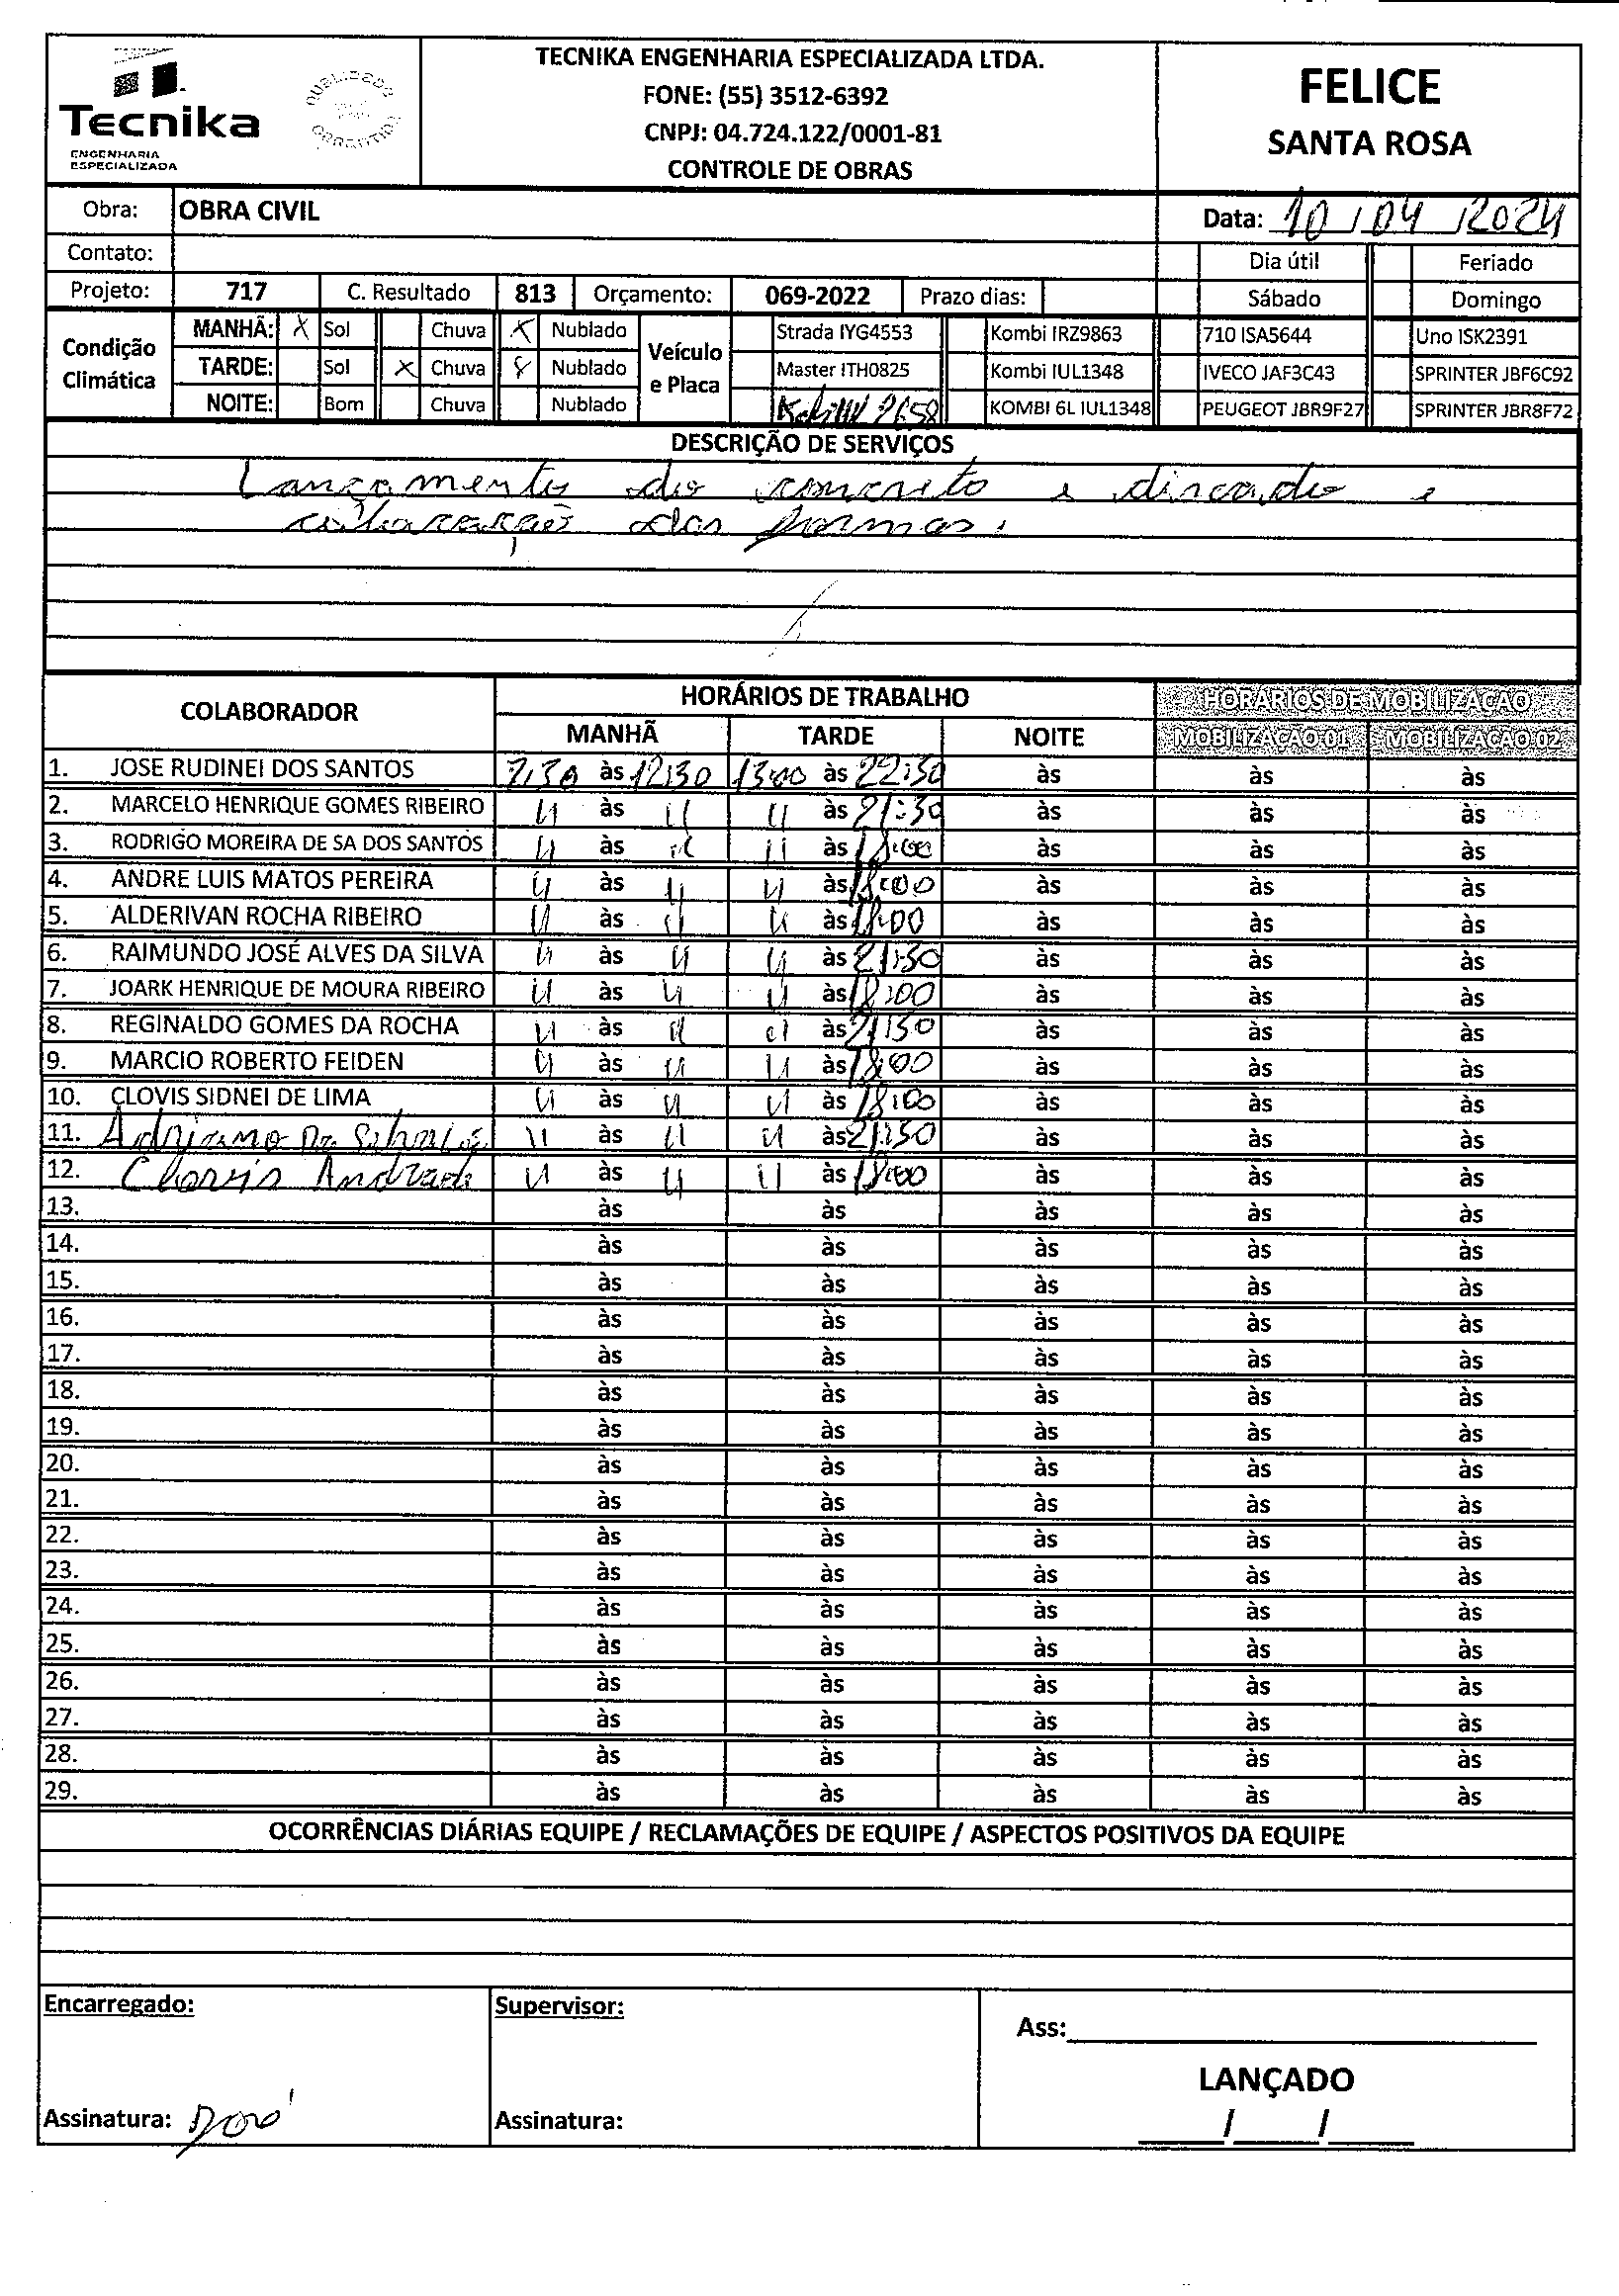 Tecnika
ENGENHARIA
ESPECIALIZADA
TECNIKA ENGENHARIA ESPECIALIZADA LTDA.
FONE: (55) 3512-6392
CNPJ: 04.724.122/0001-81
CONTROLE DE OBRAS
FELICE
SANTA ROSA
Obra: OBRA CIVIL
Data: 10/04/2024
Contato:
Dia útil Feriado
Projeto: 717 C. Resultado 813 Orçamento: 069-2022 Prazo dias:
Sábado Domingo
Condição Climática
MANHÃ: X Sol Chuva X Nublado
TARDE: Sol X Chuva X Nublado
NOITE: Bom Chuva Nublado
Veículo e Placa
Strada IYG4553 Kombi IRZ9863 710 ISA5644 Uno ISK2391
Master ITH0825 Kombi IUL1348 IVECO JAF3C43 SPRINTER JBF6C92
2658 KOMBI 6L IUL1348 PEUGEOT JBR9F27 SPRINTER JBR8F72
DESCRIÇÃO DE SERVIÇOS
Lançamento do concreto e
das formas.
COLABORADOR HORÁRIOS DE TRABALHO HORÁRIOS DE MOBILIZAÇÃO
MANHÃ TARDE NOITE MOBILIZAÇÃO 01 MOBILIZAÇÃO 02
1. JOSE RUDINEI DOS SANTOS 7:30 às 12:30 13:00 às 22:30 às às às
2. MARCELO HENRIQUE GOMES RIBEIRO " às " " às 21:30 às às às
3. RODRIGO MOREIRA DE SA DOS SANTOS " às " " às 18:00 às às às
4. ANDRE LUIS MATOS PEREIRA " às " " às 18:00 às às às
5. ALDERIVAN ROCHA RIBEIRO " às " " às 18:00 às às às
6. RAIMUNDO JOSÉ ALVES DA SILVA " às " " às 21:30 às às às
7. JOARK HENRIQUE DE MOURA RIBEIRO " às " " às 18:00 às às às
8. REGINALDO GOMES DA ROCHA " às " " às 21:30 às às às
9. MARCIO ROBERTO FEIDEN " às " " às 18:00 às às às
10. CLOVIS SIDNEI DE LIMA " às " " às 18:00 às às às
11. Adriano " às " " às 21:30 às às às
12. Clovis Andrade " às " " às 18:00 às às às
13. às às às às às
14. às às às às às
15. às às às às às
16. às às às às às
17. às às às às às
18. às às às às às
19. às às às às às
20. às às às às às
21. às às às às às
22. às às às às às
23. às às às às às
24. às às às às às
25. às às às às às
26. às às às às às
27. às às às às às
28. às às às às às
29. às às às às às
OCORRÊNCIAS DIÁRIAS EQUIPE / RECLAMAÇÕES DE EQUIPE / ASPECTOS POSITIVOS DA EQUIPE
Encarregado:
Supervisor:
Ass:
LANÇADO
Assinatura:
Assinatura:
/ /